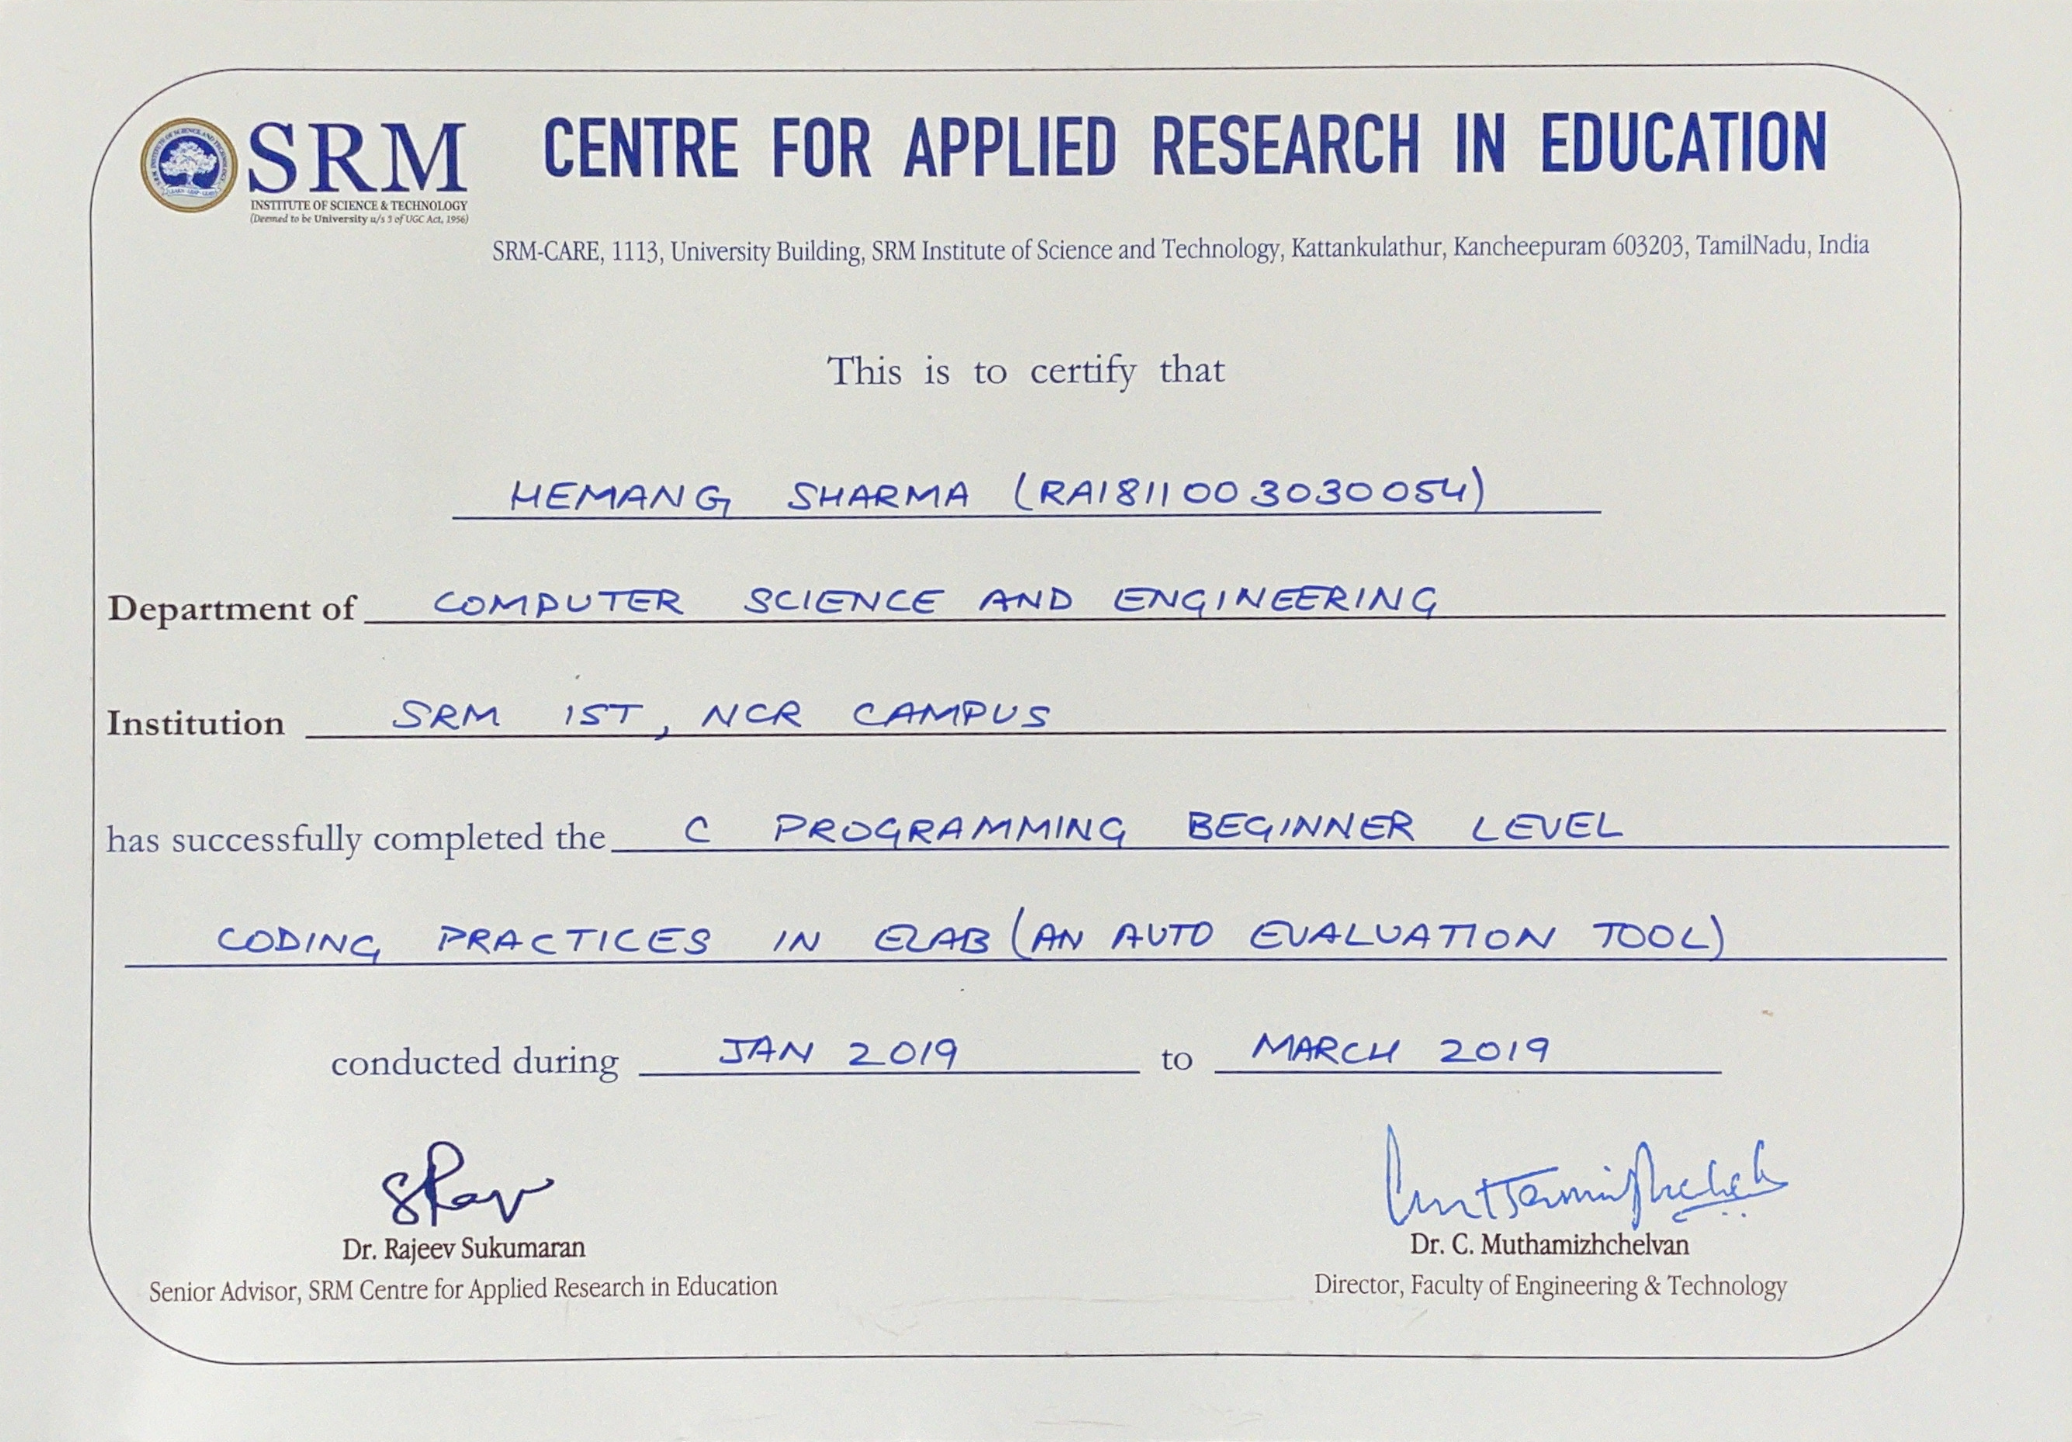 SRM
INSTITUTE OF SCIENCE & TECHNOLOGY
(Deemed to be University u/s 3 of UGC Act, 1956)
CENTRE FOR APPLIED RESEARCH IN EDUCATION
SRM-CARE, 1113, University Building, SRM Institute of Science and Technology, Kattankulathur, Kancheepuram 603203, TamilNadu, India
This is to certify that
HEMANG SHARMA (RA1811003030054)
Department of COMPUTER SCIENCE AND ENGINEERING
Institution SRM IST, NCR CAMPUS
has successfully completed the C PROGRAMMING BEGINNER LEVEL
CODING PRACTICES IN ELAB (AN AUTO EVALUATION TOOL)
conducted during JAN 2019 to MARCH 2019
Dr. Rajeev Sukumaran
Senior Advisor, SRM Centre for Applied Research in Education
Dr. C. Muthamizhchelvan
Director, Faculty of Engineering & Technology